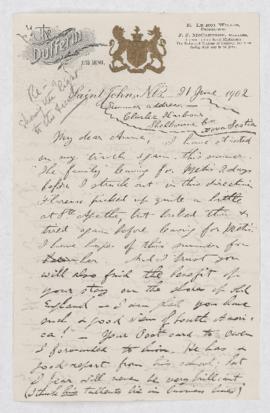 The
Dufferin
E. LeRoi Willis,
Proprietor.
Saint John, N.B. 21 June 1902
Summer address
Clarke's Harbour
Shelburne Co
Nova Scotia
My dear Annie, I have started
on my travels again this summer.
The family leaving for Metis 2 days
before I struck out in this direction
Florence picked up quite a little
at Ste Agathe, but halted then &
tried again before leaving for Metis.
I have hopes of this summer for
her. And I trust you
will also find the benefit of
your stay on the shores of Old
England – I am glad you have
such a good view of South Ameri-
ca! – Your Post card to Owen
I forwarded to him. He has a
good report from his school, but
I fear will never be very brilliant
(I think his talents lie in business lines)